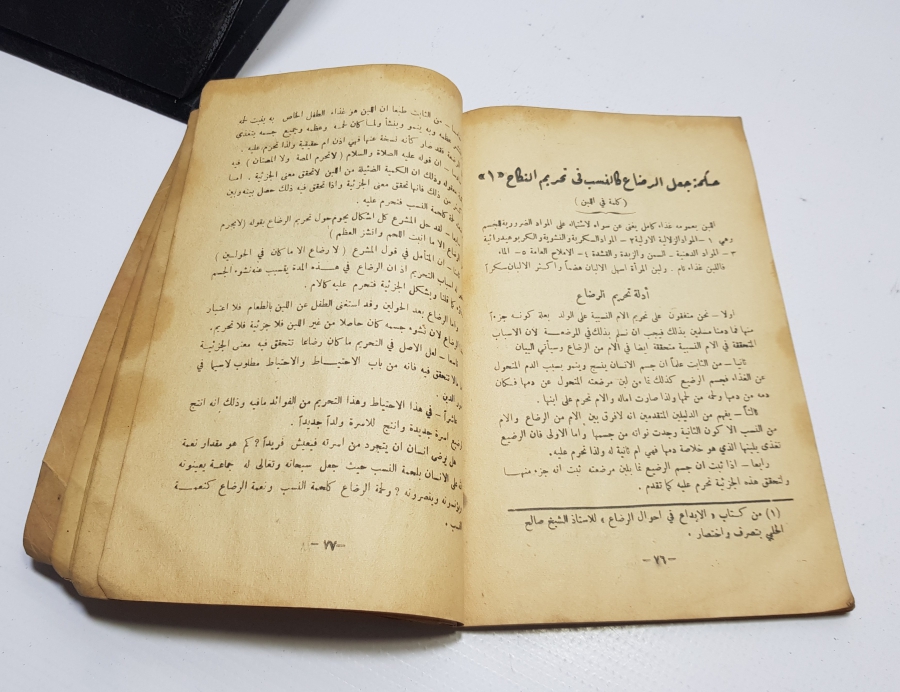 حكمة جعل الرضاع كالنسب في تحريم النكاح «١»
( كلمة في اللبن )
اللبن بعمومه غذاء كامل يغني عن سواه لاشتماله على المواد الضرورية للجسم
وهي ١ – المواد الزلالية الاولية ٢ – المواد السكرية والنشوية والكربوهيدراتية
٣ – المواد الدهنية – السمن والزبدة والقشدة ٤ – الاملاح العامة ٥ – الماء
فاللبن غذاء تام . ولبن المرأة اسهل الالبان هضماً وأكثر الالبان سكراً
أدلة تحريم الرضاع
اولا – نحن متفقون على تحريم الام النسبية على الولد بعلة كونه جزءاً
منها فما دمنا مسلمين بذلك فيجب ان نسلم بذلك في المرضعة لان الاسباب
المتحققة في الام النسبية متحققة ايضا في الام من الرضاع وسيأتي البيان
ثانيا – من الثابت علماً أن جسم الانسان ينسج وينمو بسبب الدم المتحول
عن الغذاء فجسم الرضيع كذلك نما من لبن مرضعته المتحول عن دمها فكان
دمه من دمها ولحمه من لحمها ولذا صارت اما له والام تحرم على ابنها .
ثالثاً – يفهم من الدليلين المتقدمين انه لا فرق بين الام من الرضاع والام
من النسب الا كون الثانية وجدت نواته من جسمها وأما الاولى فان الرضيع
تغذى بلبنها الذي هو خلاصة دمها فهي ام ثانية له ولذا تحرم عليه.
رابعا – اذا ثبت ان جسم الرضيع نما بلبن مرضعته ثبت انه جزء منها
ولتحقق هذه الجزئية تحرم عليه كما تقدم .
(١) من كتاب « الابداع في احوال الرضاع » للاستاذ الشيخ صالح
الحلبي بتصرف واختصار .
– ٧٦ –
من الثابت طبعا ان اللبن هو غذاء الطفل الخاص به ينبت لحمه
عظمه وبه ينمو وينشأ ولما كان لحمه وعظمه وجميع جسمه يتغذى
فقد صار كأنه نسخة عنها فهي اذن ام حقيقية ولذا تحرم عليه .
ان قوله عليه الصلاة والسلام ( لا تحرم المصة ولا المصتان ) فيه
وذلك ان الكمية الضئيلة من اللبن لا تحقق معنى الجزئية . اما
من ذلك فانها تحقق معنى الجزئية واذا تحقق فيه ذلك حصل بينه وبين
كلحمة النسب فتحرم عليه .
لقد حل المشرع كل اشكال يحوم حول تحريم الرضاع بقوله (لا يحرم
الرضاع الا ما انبت اللحم وانشز العظم )
ان المتأمل في قول المشرع ( لا رضاع الا ما كان في الحولين )
لباب التحريم اذ ان الرضاع في هذه المدة يتسبب عنه نشوء الجسم
كما قلنا ويشكل الجزئية فتحرم عليه كالام .
واما الرضاع بعد الحولين وقد استغنى الطفل عن اللبن بالطعام فلا اعتبار
الرضاع لان نشوء جسمه كان حاصلا من غير اللبن فلا جزئية فلا تحريم.
– لعل الاصل في التحريم ما كان رضاعا تتحقق فيه معنى الجزئية
ما لا تتحقق فيه فانه من باب الاحتياط والاحتياط مطلوب لاسيما في
الدين .
عاشراً – في هذا الاحتياط وهذا التحريم من الفوائد ما فيه وذلك انه انتج
اسرة جديدة وانتج للاسرة ولداً جديداً .
هل يرضى انسان ان يتجرد من اسرته فيعيش فريداً ؟ كم هو مقدار نعمة
على الانسان بلحمة النسب حيث جعل سبحانه وتعالى له جماعة يعينونه
وينصرونه ؟ ولحمة الرضاع كلحمة النسب ونعمة الرضاع كنعمة
النسب .
– ٧٧ –